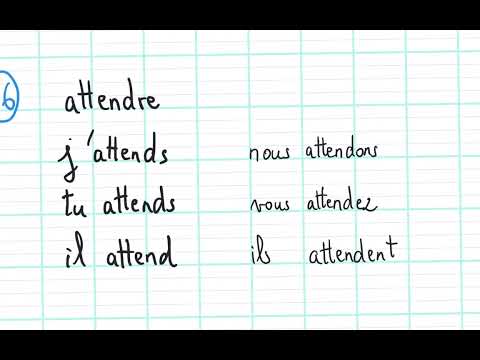 6
attendre
j'attends nous attendons
tu attends vous attendez
il attend ils attendent